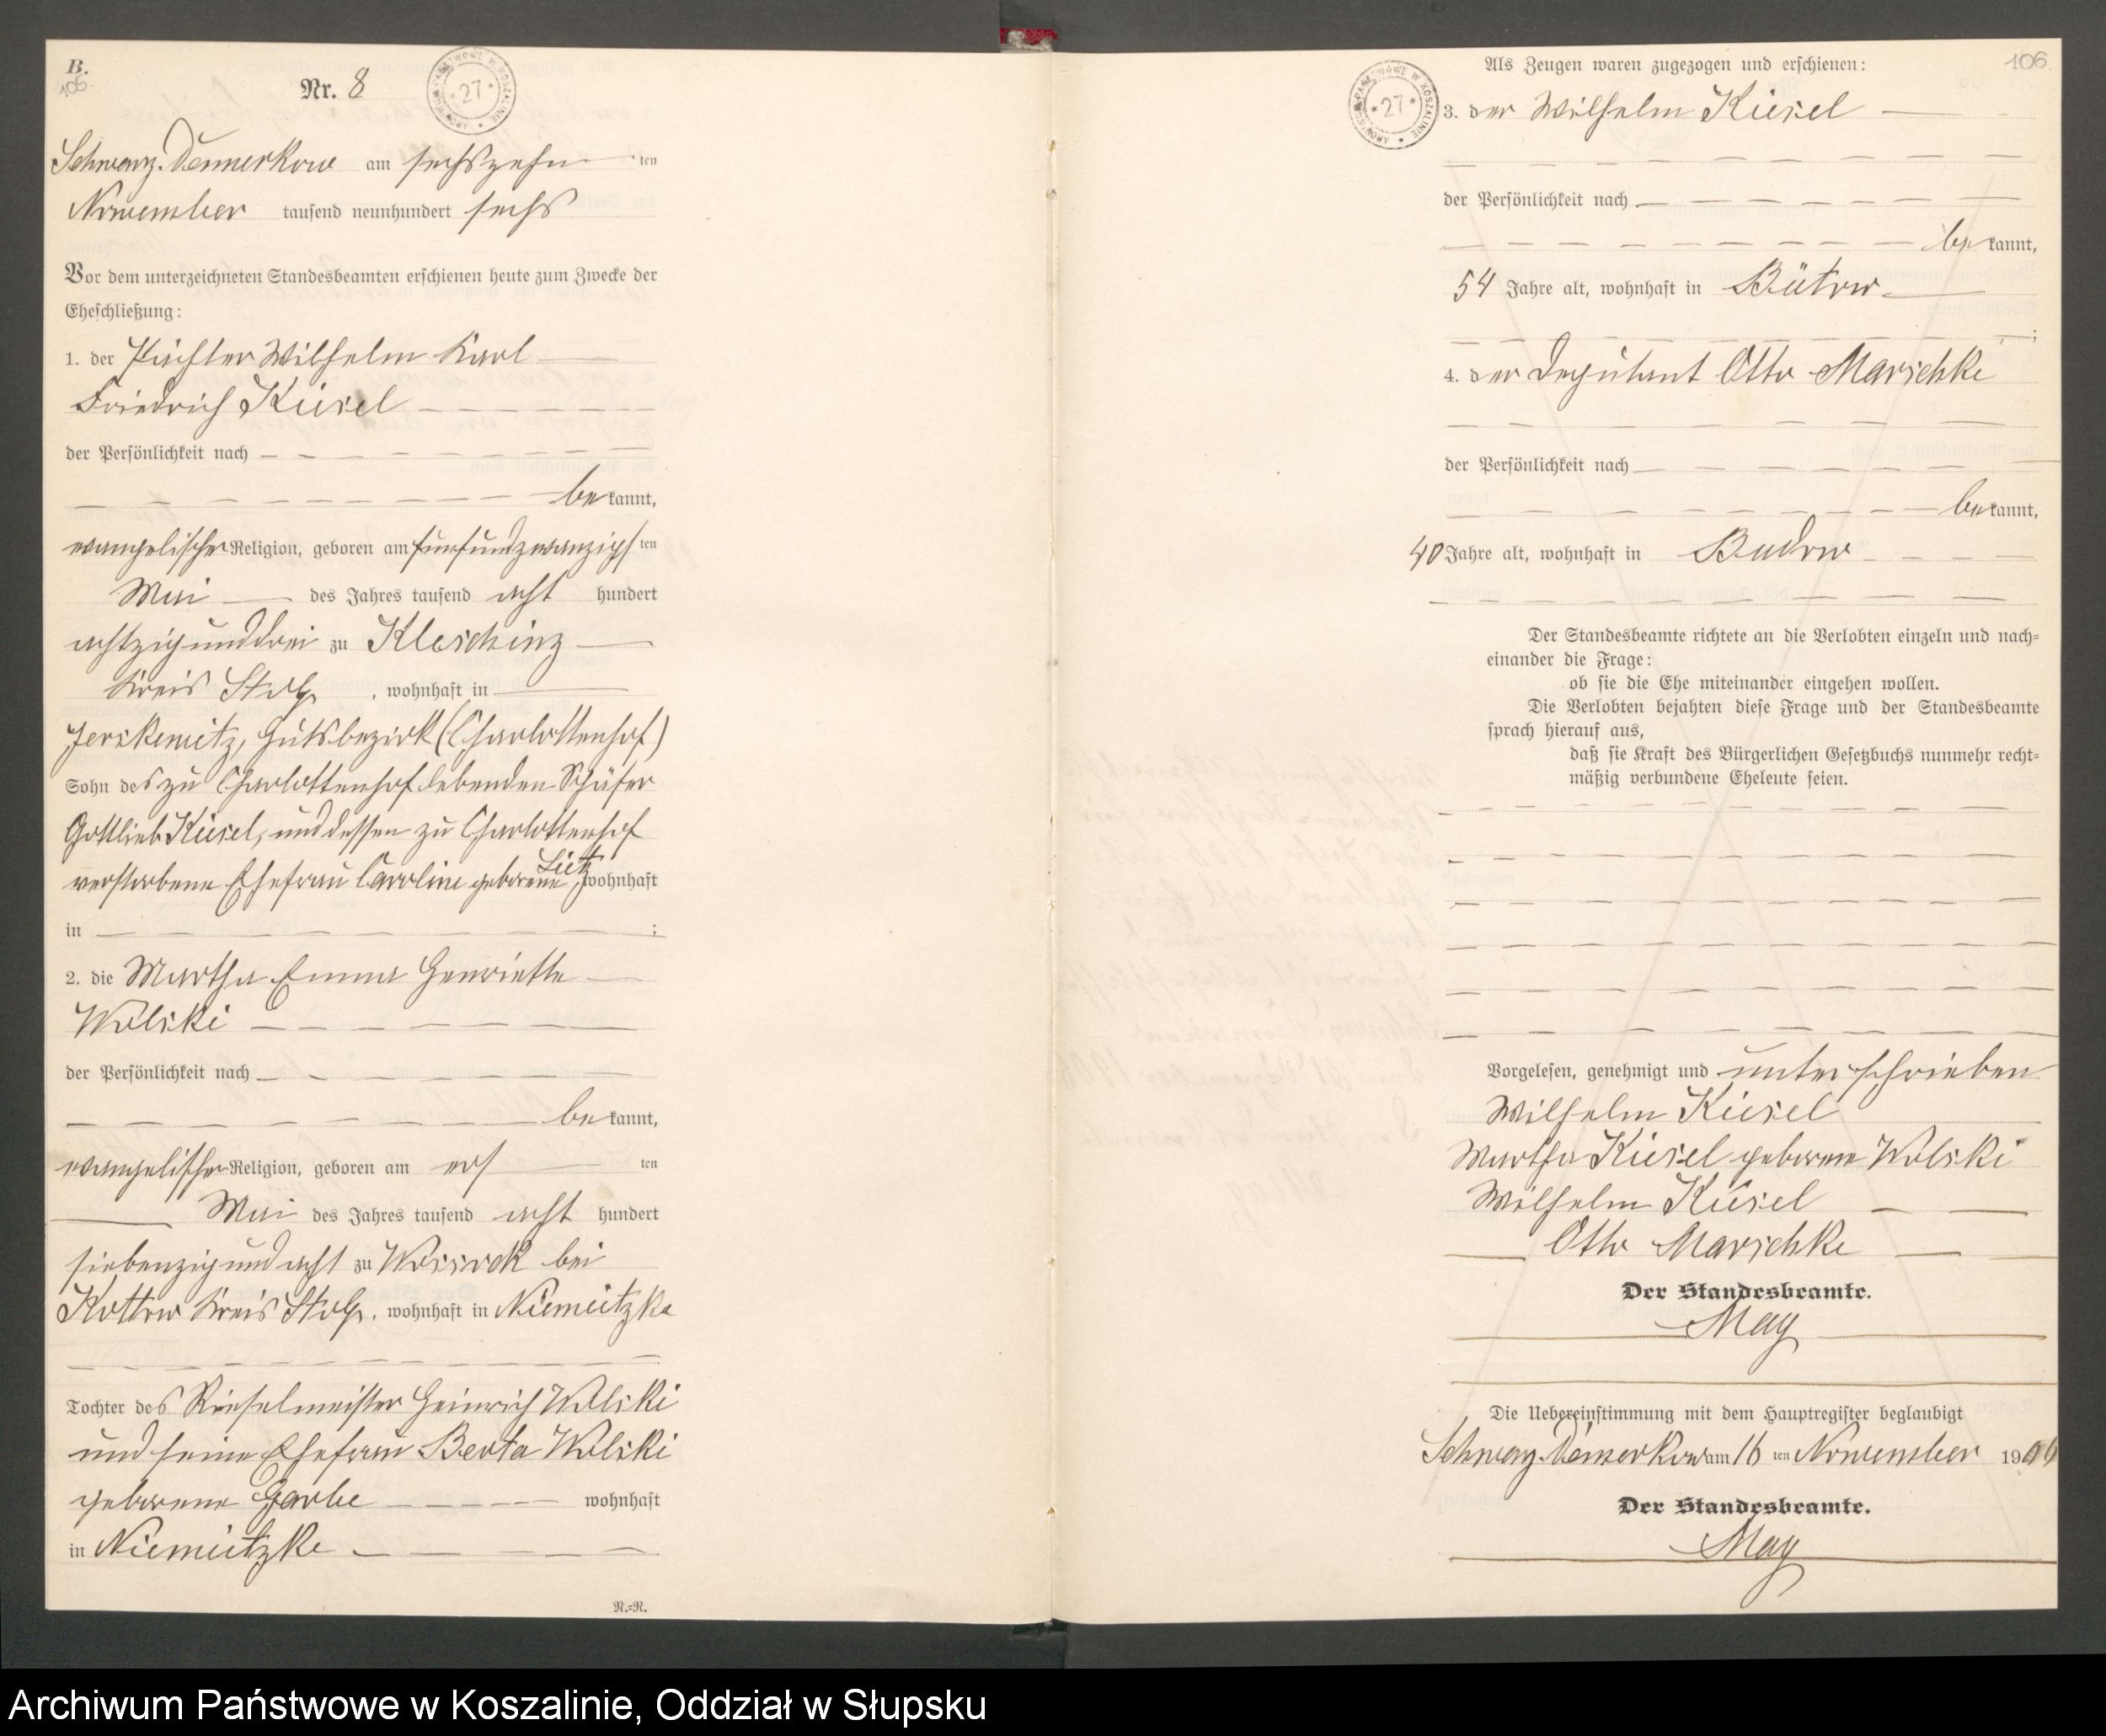 B.
105.
Nr. 8
ARCHIWUM PAŃSTWOWE W KOSZALINIE * 27 *
Schwarz-Damerkow am sechszehnten
November tausend neunhundert sechs
Vor dem unterzeichneten Standesbeamten erschienen heute zum Zwecke der
Eheschließung:
1. der Pächter Wilhelm Karl
Friedrich Kiesel
der Persönlichkeit nach
bekannt,
evangelischer Religion, geboren am fünfundzwanzigsten
Mai des Jahres tausend acht hundert
achtzigunddrei zu Kleschinz
Kreis Stolp, wohnhaft in
Jerskewitz, Gutsbezirk (Charlottenhof)
Sohn des zu Charlottenhof lebenden Schäfer
Gottlieb Kiesel, und dessen zu Charlottenhof
verstorbene Ehefrau Caroline geborene Lietz, wohnhaft
in ;
2. die Martha Emma Henriette
Wolski
der Persönlichkeit nach
bekannt,
evangelischer Religion, geboren am ersten
Mai des Jahres tausend acht hundert
siebenzigundacht zu Wossek bei
Kottow Kreis Stolp, wohnhaft in Niemietzke
Tochter des Rieselmeister Heinrich Wolski
und seine Ehefrau Berta Wolski
geborene Garbe wohnhaft
in Niemietzke
N.=N.
106.
ARCHIWUM PAŃSTWOWE W KOSZALINIE * 27 *
Als Zeugen waren zugezogen und erschienen:
3. der Wilhelm Kiesel
der Persönlichkeit nach
bekannt,
54 Jahre alt, wohnhaft in Bütow
;
4. der Deputant Otto Marschke
der Persönlichkeit nach
bekannt,
40 Jahre alt, wohnhaft in Budow
Der Standesbeamte richtete an die Verlobten einzeln und nach=
einander die Frage:
ob sie die Ehe miteinander eingehen wollen.
Die Verlobten bejahten diese Frage und der Standesbeamte
sprach hierauf aus,
daß sie Kraft des Bürgerlichen Gesetzbuchs nunmehr recht=
mäßig verbundene Eheleute seien.
Vorgelesen, genehmigt und unterschrieben
Wilhelm Kiesel
Martha Kiesel geborene Wolski
Wilhelm Kiesel
Otto Marschke
Der Standesbeamte.
May
Die Uebereinstimmung mit dem Hauptregister beglaubigt
Schwarz-Damerkow am 16 ten November 1906
Der Standesbeamte.
May
Archiwum Państwowe w Koszalinie, Oddział w Słupsku